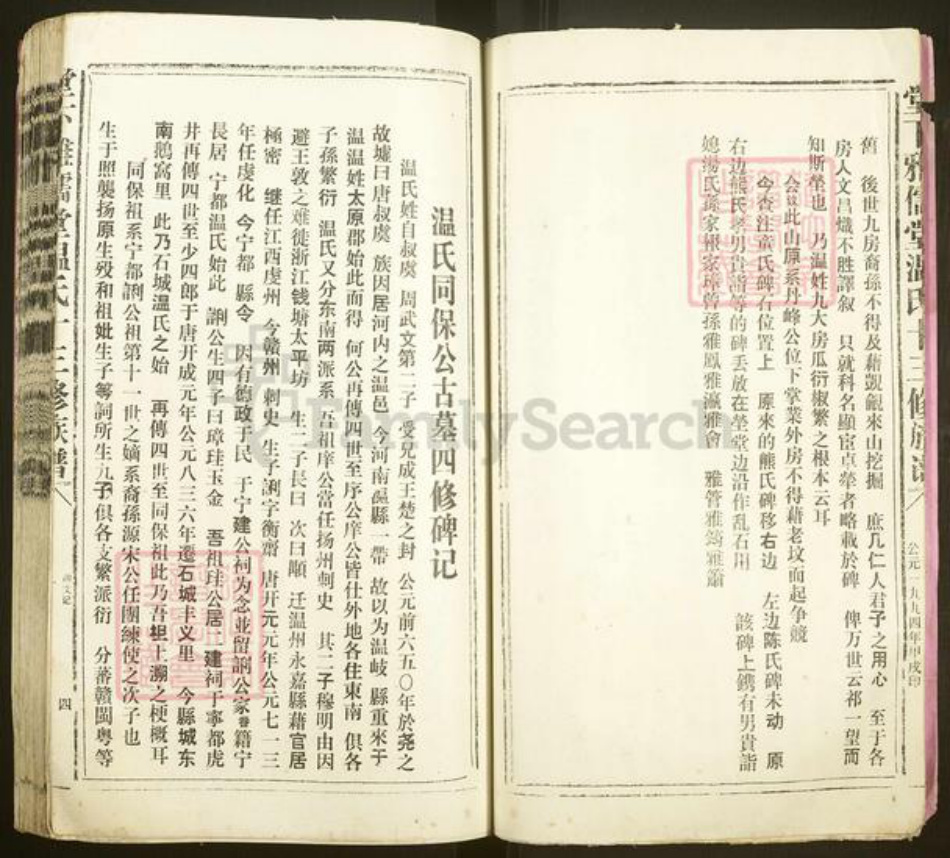 舊　後世九房裔孫不得及藉觀覦來山挖掘　庶几仁人君子之用心　至于各
房人文昌熾不胜譯叙　只就科名顯宦卓犖者略載於碑　俾万世云祁一望而
知斯塋也　乃温姓九大房瓜衍椒繁之根本云耳
会议此山原系丹峰公位下掌業外房不得藉老坟而起争競
今查注童氏碑石位置上　原來的熊氏碑移右边　左边陈氏碑未动　原
右边熊氏孝男貴諧等的碑丢放在塋堂边沿作乱石用　該碑上鐫有男貴諧
媳湯氏孫家　家璋曾孫雅鳳雅瀛雅會　雅管雅筠雅簫
公元一九九四年甲戌印
温氏同保公古墓四修碑记
温氏姓自叔虞　周武文第二子　受兄成王楚之封　公元前六五〇年於尧之
故墟曰唐叔虞　族因居河内之温邑　今河南温縣一帶　故以为温岐　縣重來于
温温姓太原郡始此而得　何公再傳四世至序公庠公皆仕外地各住東南　俱各
子孫繁衍　温氏又分东南两派系　吾祖庠公當任扬州刺史　其二子穆明由因
避王敦之难徒浙江钱塘太平坊　生二子長曰　次曰順　迁温州永嘉縣藉官居
極密　继任江西虔州　今赣州　刺史　生子詗字衡齋　唐开元元年公元七一三
年任虔化　今宁都　縣令　因有德政于民　于宁建公祠为念並留詗公家眷籍宁
長居　宁都温氏始此　詗公生四子曰璋珪玉金　吾祖珪公居二建祠于寧都虎
井再傳四世至少四郎于唐开成元年公元八三六年遷石城丰义里　今縣城东
南鵝窩里　此乃石城温氏之始　再傳四世至同保祖此乃吾坦上溯之梗概耳
同保祖系宁都詗公祖第十一世之嫡系裔孫源宋公任團練使之次子也
生于照襲扬原生殁和祖妣生子等詞所生九子俱各支繁派衍　分蕃赣闽粤等
四